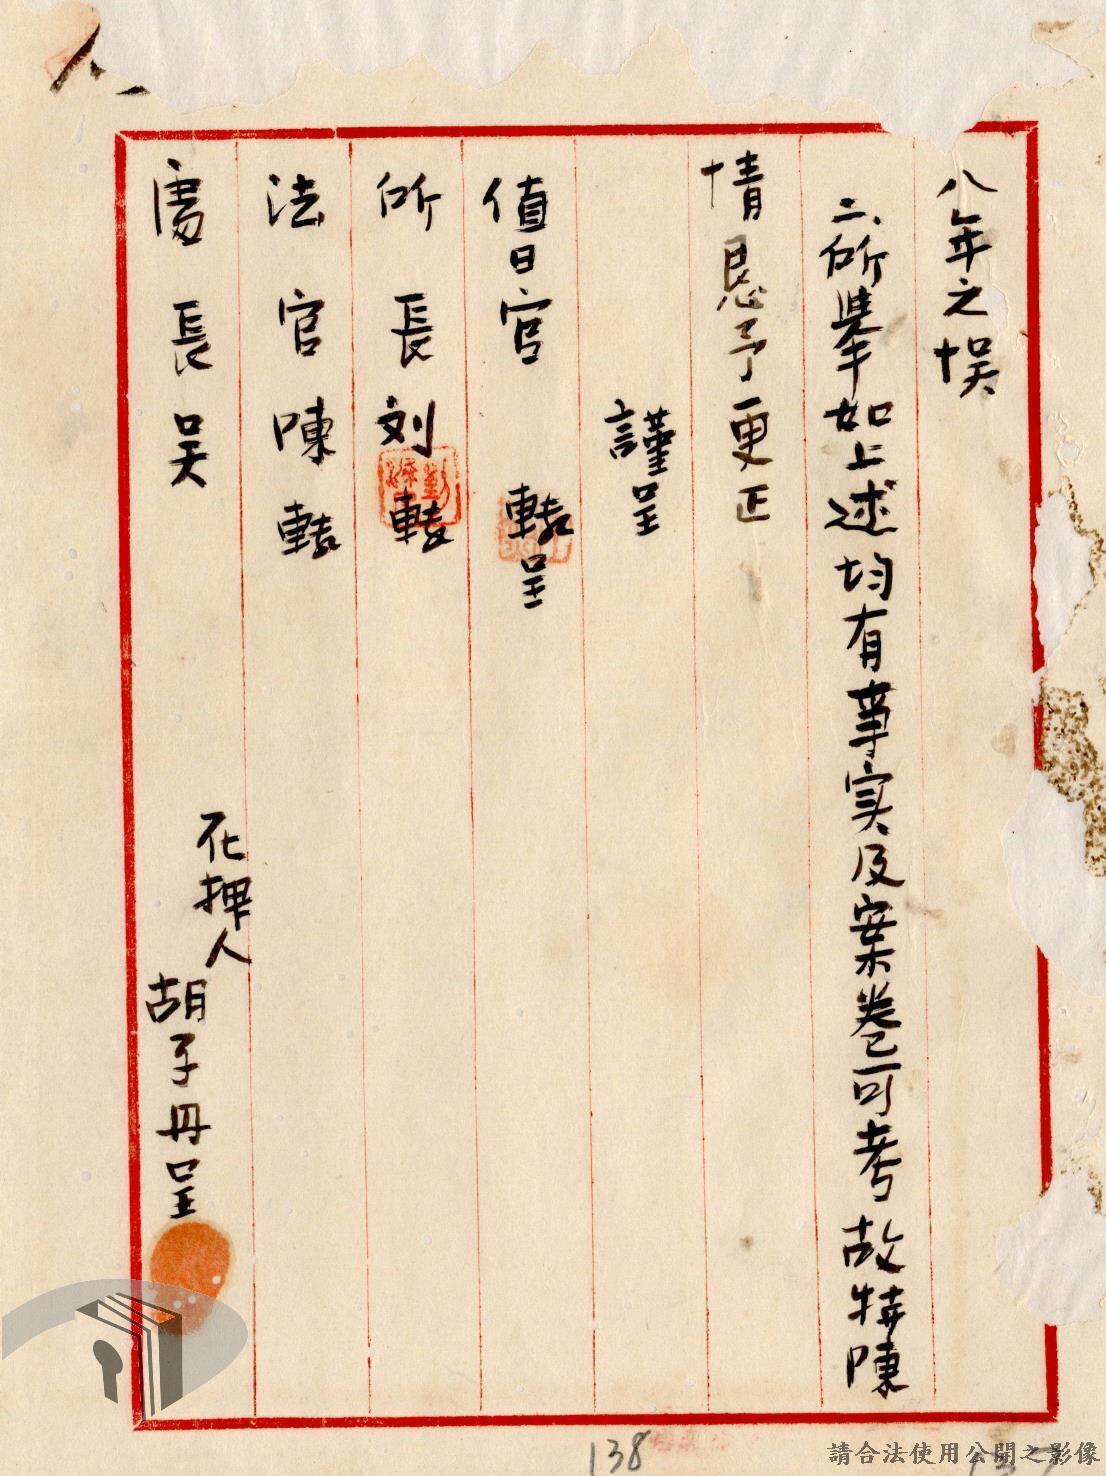 八年之悞
二、所舉如上述均有事実及案卷可考故特陳
情恳予更正
謹呈
值日官 轉呈
所長刘 轉
法官陳 轉
處長吴
在押人
胡子丹呈
138
137
請合法使用公開之影像